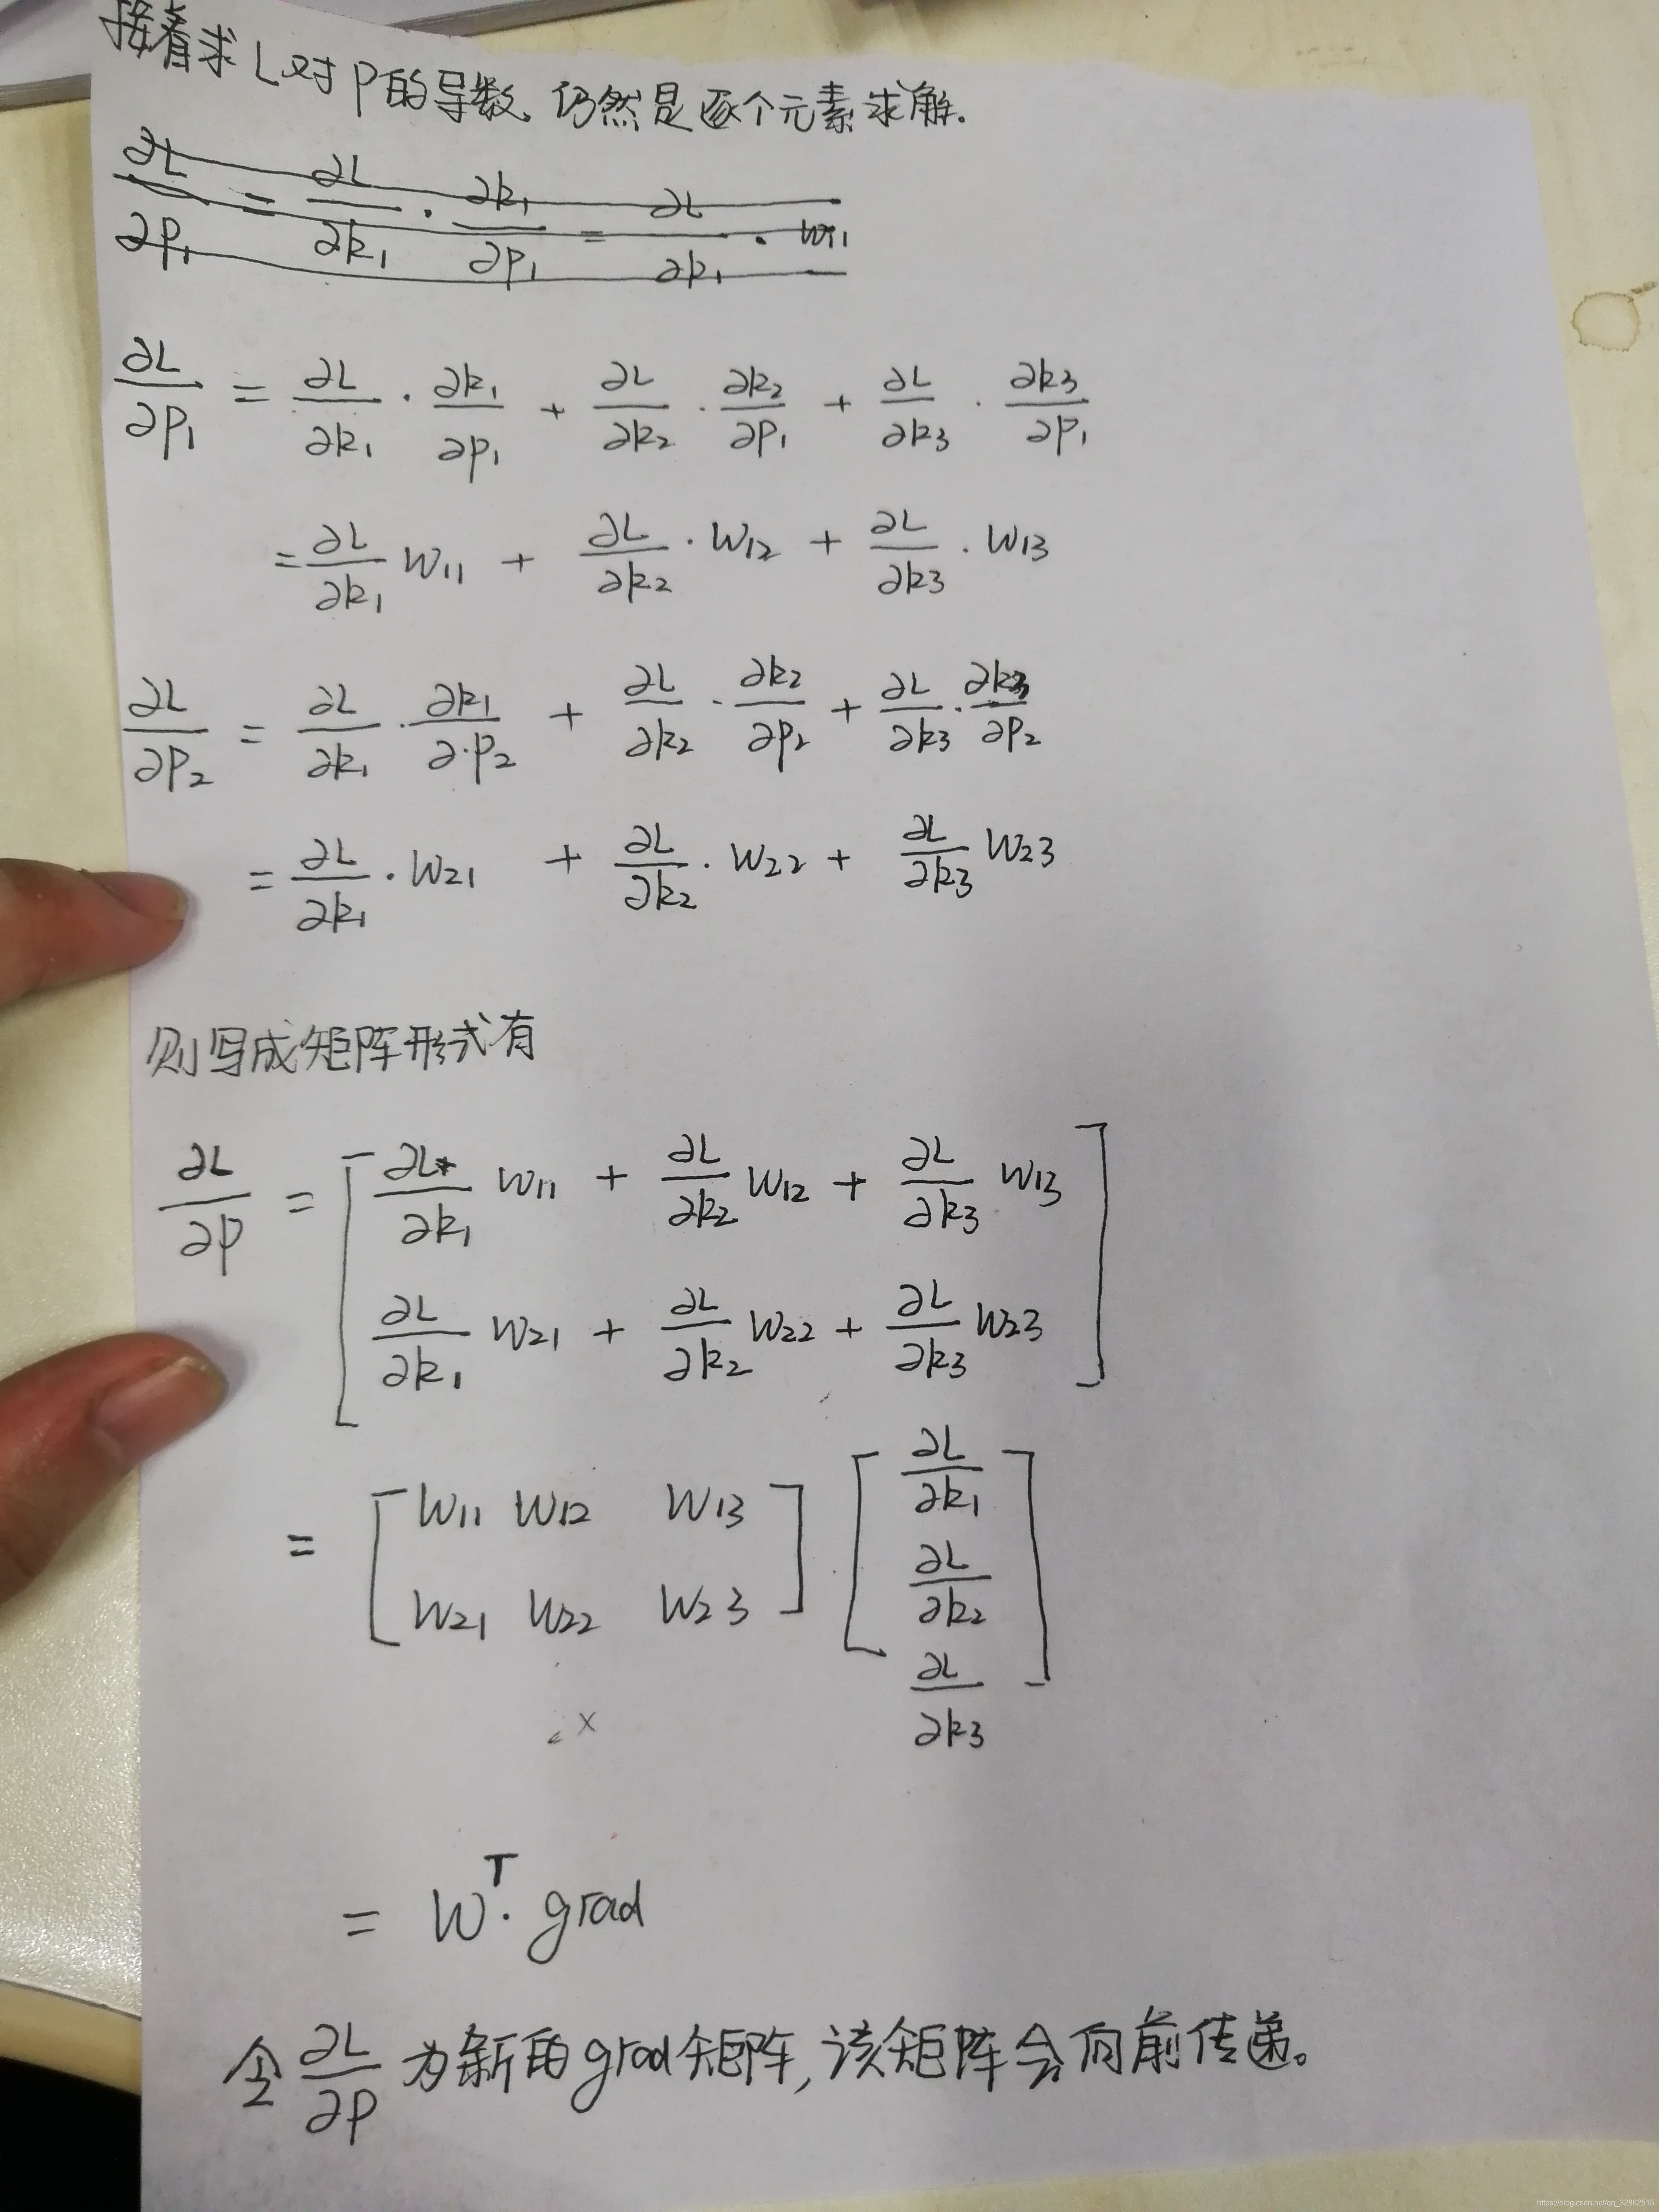 接着求L对P的导数,仍然是逐个元素求解.
∂L/∂P₁ = ∂L/∂k₁ · ∂k₁/∂P₁ = ∂L/∂k₁ · w₁₁
∂L/∂P₁ = ∂L/∂k₁ · ∂k₁/∂P₁ + ∂L/∂k₂ · ∂k₂/∂P₁ + ∂L/∂k₃ · ∂k₃/∂P₁
= ∂L/∂k₁ W₁₁ + ∂L/∂k₂ · W₁₂ + ∂L/∂k₃ · W₁₃
∂L/∂P₂ = ∂L/∂k₁ · ∂k₁/∂·P₂ + ∂L/∂k₂ · ∂k₂/∂P₂ + ∂L/∂k₃ · ∂k₃/∂P₂
= ∂L/∂k₁ · W₂₁ + ∂L/∂k₂ · W₂₂ + ∂L/∂k₃ W₂₃
则写成矩阵形式有
∂L/∂P = [ ∂L/∂k₁ W₁₁ + ∂L/∂k₂ W₁₂ + ∂L/∂k₃ W₁₃
∂L/∂k₁ W₂₁ + ∂L/∂k₂ W₂₂ + ∂L/∂k₃ W₂₃ ]
= [ W₁₁ W₁₂ W₁₃ ] · [ ∂L/∂k₁
W₂₁ W₂₂ W₂₃ ∂L/∂k₂
∂L/∂k₃ ]
x
= Wᵀ · grad
令 ∂L/∂P 为新的grad矩阵,该矩阵会向前传递。
https://blog.csdn.net/qq_32862515